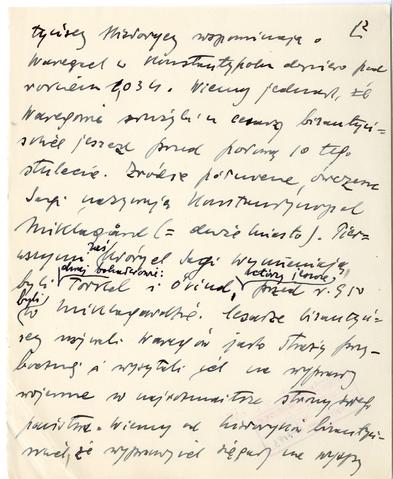 12
tyńscy historycy wspominają o
Waregach w Konstantynopolu dopiero pod
rokiem 1034. Wiemy jednak, że
Waregowie służyli cesarzy bizantyń=
skich jeszcze przed połową 10 tego
stulecia. Źródła północne, ówczesne
Sagi nazywają Konstantynopol
Miklagård (= duże miasto). Pier=
wszymi zaś których Sagi wymieniają,
dwaj bohaterowie: którzy
byli: Torkel i Ovind, przed r. 950
byli w Miklagardzie. Cesarze bizantyń=
scy najmowali Waregów jako straż przy=
boczną i wysyłali ich na wyprawy
wojenne w najrozmaitsze strony swego
państwa. Wiemy od historyków bizantyń=
skich, że wyprawy ich sięgały na wyspy